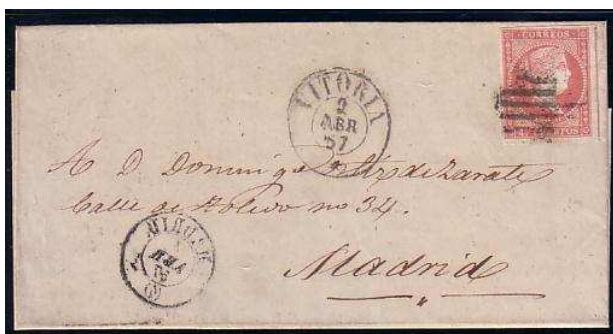 CORREOS
VITORIA
2
ABR
57
A D. Domingo Ortiz de Zarate
Calle de Toledo no 34.
Madrid
MADRID
ABR